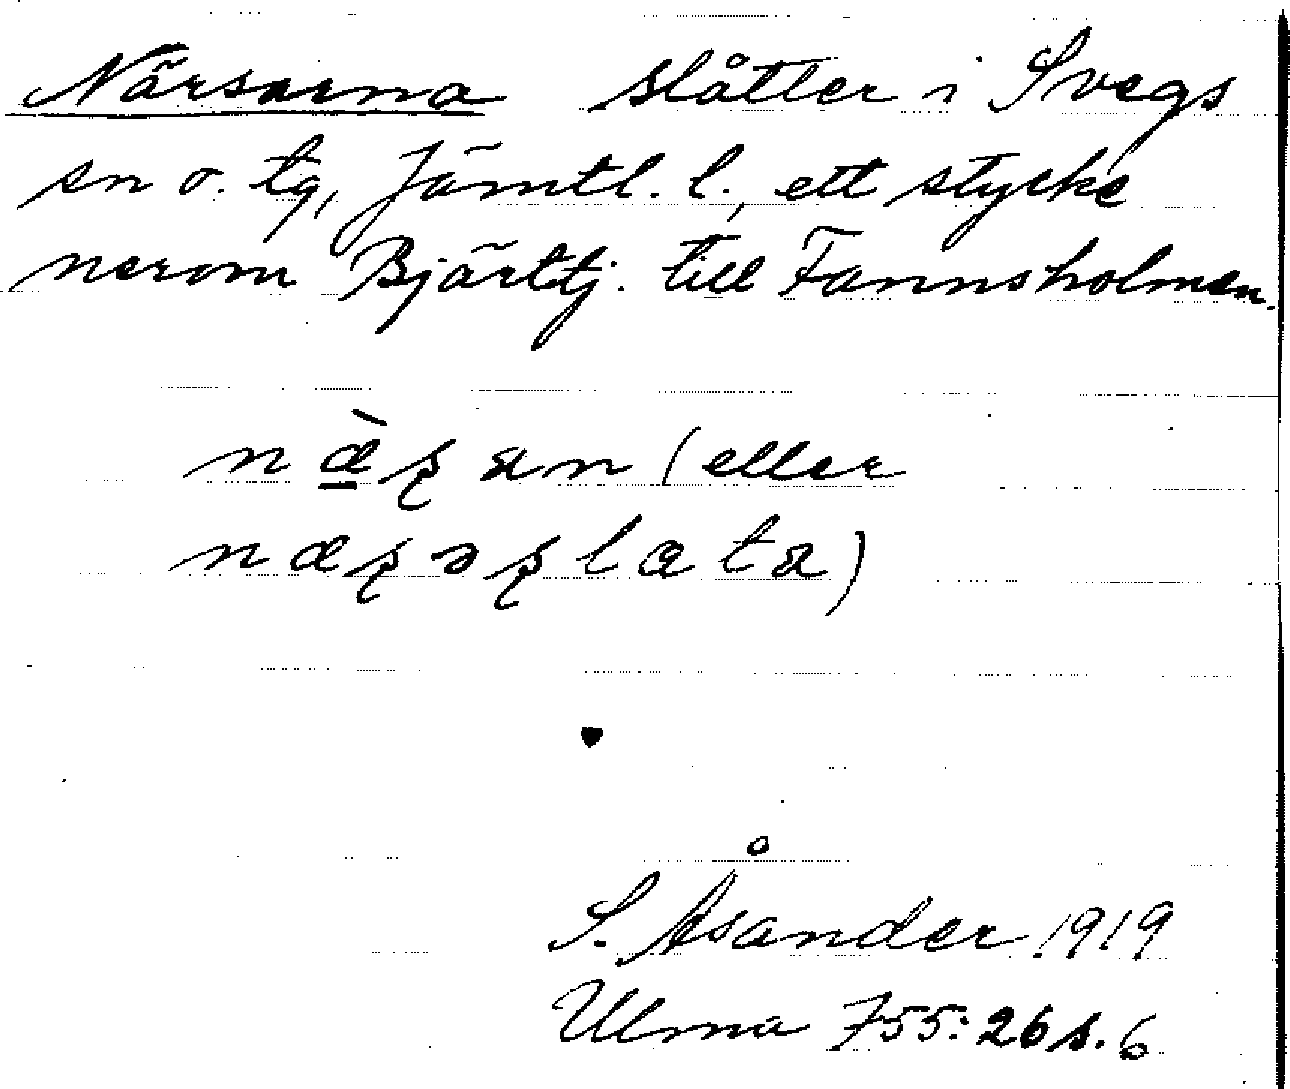 Närsarna slåtter i Svegs
sn o. tg, Jämtl. l., ett stycke
nerom Bjärttj. till Fannsholmen.
næ̠̀ʂan (eller
næʂəʂlata)
S. Åsander 1919
Ulma 755: 26 s. 6